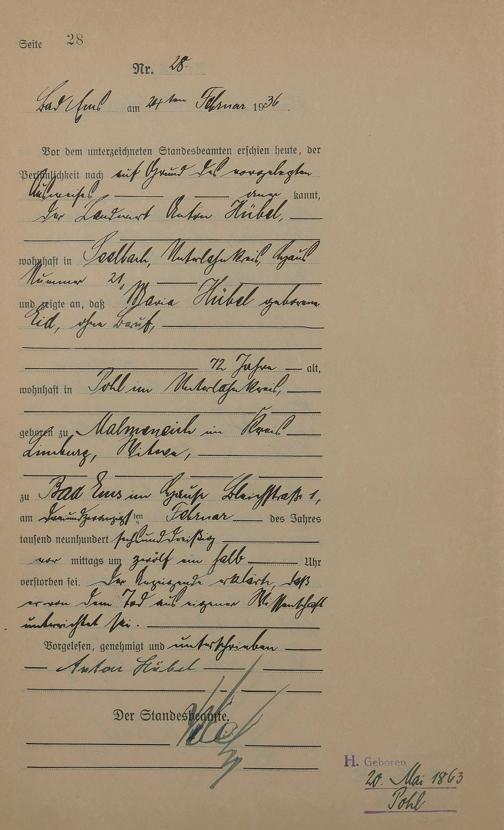 Seite 28
Nr. 28
Bad Ems am 24ten Februar 1936.
Vor dem unterzeichneten Standesbeamten erschien heute, der
Persönlichkeit nach auf Grund des vorgelegten
Ausweises aner kannt,
der Landwirt Anton Hübel,
wohnhaft in Seelbach, Unterlahnkreis, Haus
Nummer 21,
und zeigte an, daß Maria Hübel geborene
Eid, ohne Beruf,
72 Jahre alt,
wohnhaft in Pohl im Unterlahnkreis,
geboren zu Malmeneich im Kreis
Limburg, Witwe,
zu Bad Ems im Hause Bleichstraße 1,
am dreiundzwanzigsten Februar des Jahres
tausend neunhundert sechsunddreißig
vor mittags um zwölf ein halb Uhr
verstorben sei. Der Anzeigende erklärte, daß
er von dem Tod aus eigener Wissenschaft
unterrichtet sei.
Vorgelesen, genehmigt und unterschrieben
Anton Hübel
Der Standesbeamte.
H. Geboren
20. Mai 1863
Pohl